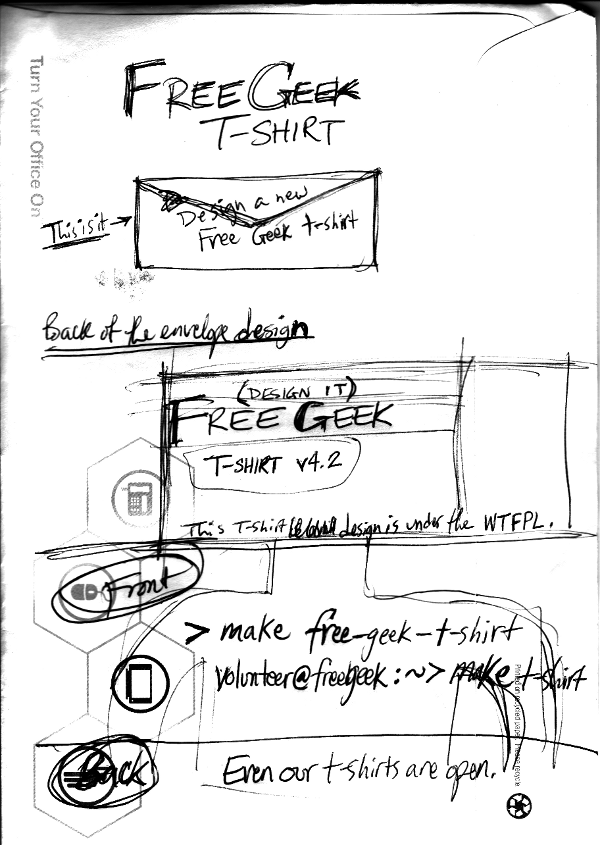 Turn Your Office On
FREE GEEK
T-SHIRT
This is it →
Design a new
Free Geek t-shirt
Back of the envelope design
(DESIGN IT)
FREE GEEK
T-SHIRT v4.2
This T-shirt design is under the WTFPL.
Front
> make free-geek-t-shirt
volunteer@freegeek:~> make t-shirt
Back
Even our t-shirts are open.